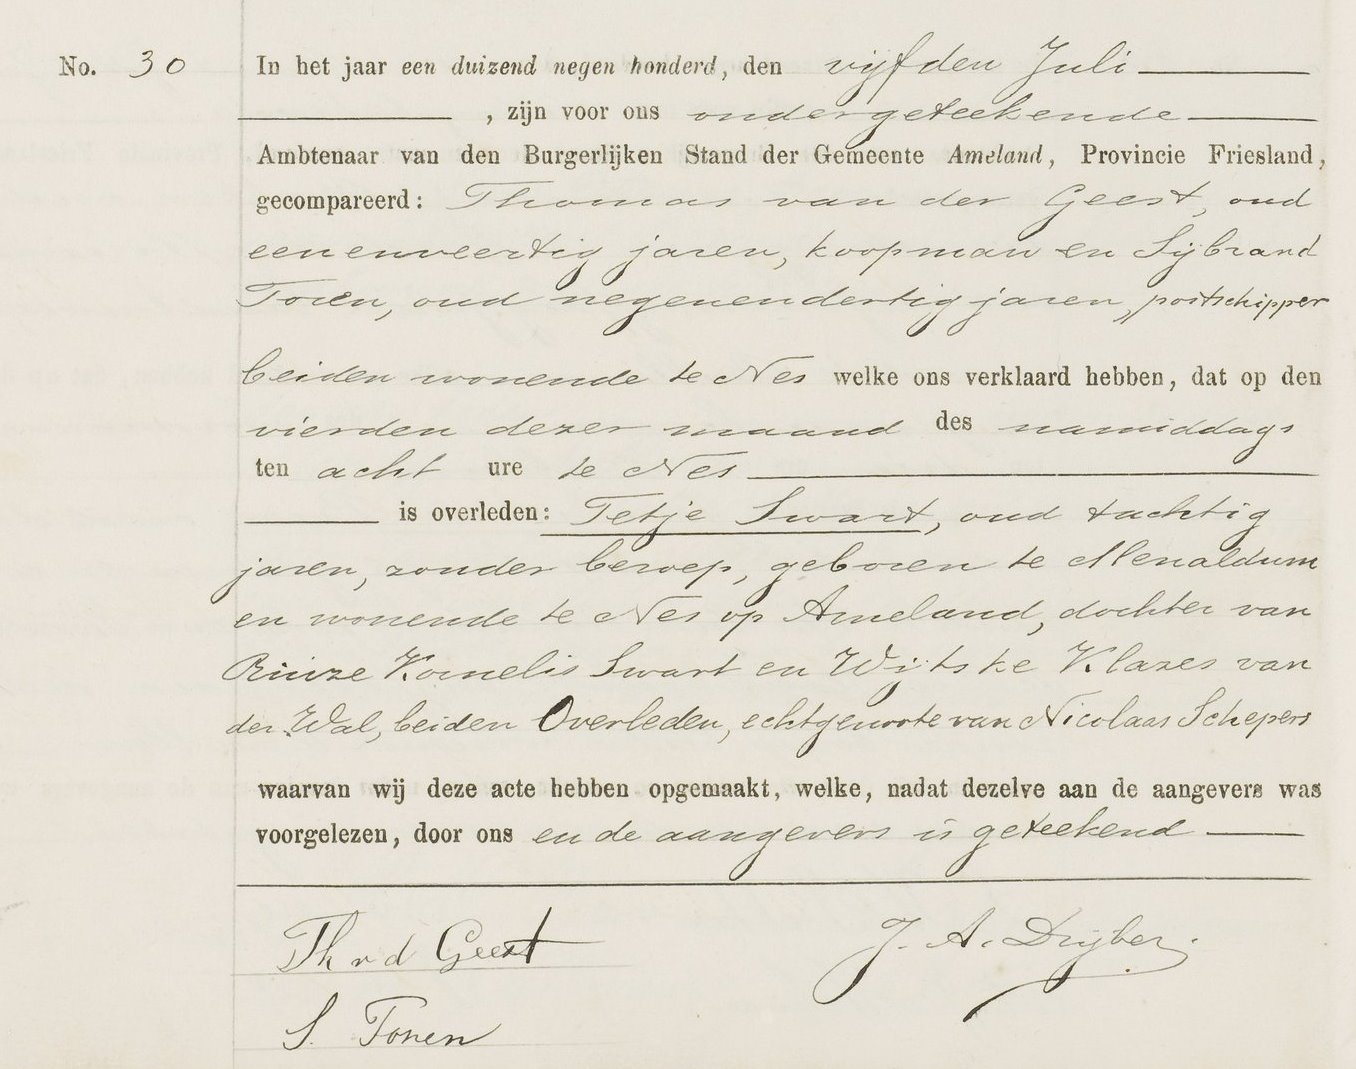 No. 30 In het jaar een duizend negen honderd, den vijfden Juli
, zijn voor ons ondergeteekende
Ambtenaar van den Burgerlijken Stand der Gemeente Ameland, Provincie Friesland,
gecompareerd: Thomas van der Geest, oud
eenenveertig jaren, koopman en Sijbrand
Toren, oud negenendertig jaren, postschipper
beiden wonende te Nes welke ons verklaard hebben, dat op den
vierden dezer maand des namiddags
ten acht ure te Nes
is overleden: Tetje Swart, oud tachtig
jaren, zonder beroep, geboren te Menaldum
en wonende te Nes op Ameland, dochter van
Rinze Kornelis Swart en Wijtske Klazes van
der Wal, beiden Overleden, echtgenoote van Nicolaas Schepers
waarvan wij deze acte hebben opgemaakt, welke, nadat dezelve aan de aangevers was
voorgelezen, door ons en de aangevers is geteekend
Th v d Geest J. A. Drijber.
S. Toren